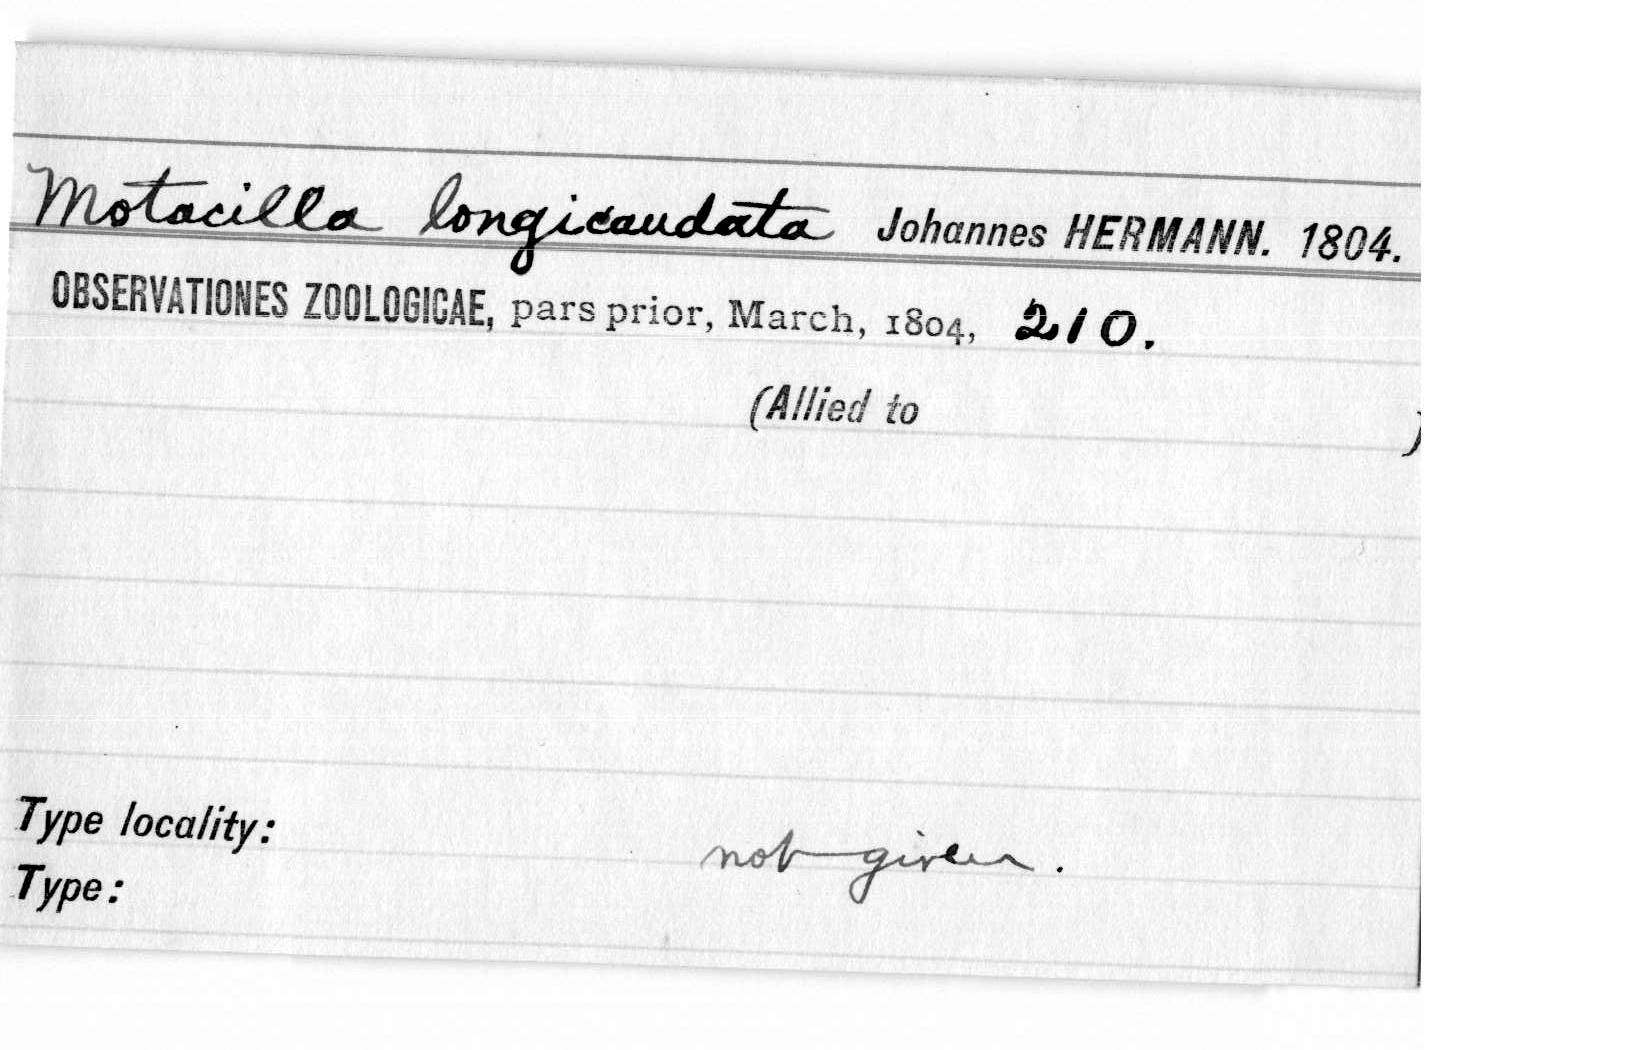 Motacilla longicaudata Johannes HERMANN. 1804.
OBSERVATIONES ZOOLOGICAE, pars prior, March, 1804, 210.
(Allied to )
Type locality: not given.
Type: